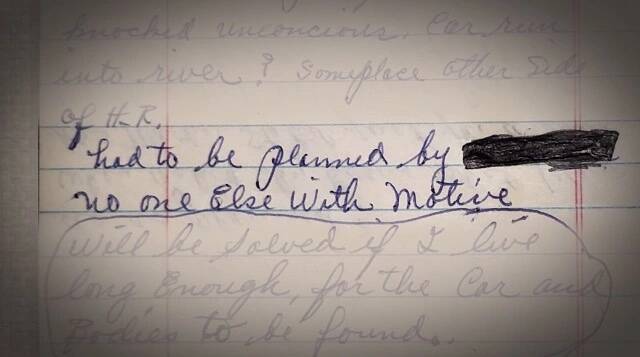 knocked unconcious. Car run
into river? Someplace other side
of H.R.
had to be planned by
no one Else With Motive
Will be Solved if I live
long Enough, for the Car and
Bodies to be found.